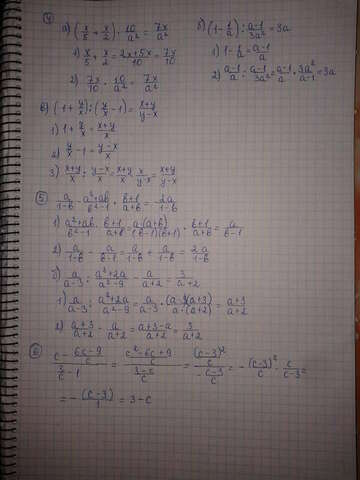 ④
а) (x/5 + x/2) · 10/a² = 7x/a²
1) x/5 + x/2 = 2x+5x/10 = 7x/10
2) 7x/10 · 10/a² = 7x/a²
б) (1 - 1/a) : a-1/3a² = 3a
1) 1 - 1/a = a-1/a
2) a-1/a : a-1/3a² = a-1/a · 3a²/a-1 = 3a
в) (1 + y/x) : (y/x - 1) = x+y/y-x
1) 1 + y/x = x+y/x
2) y/x - 1 = y-x/x
3) x+y/x : y-x/x = x+y/x · x/y-x = x+y/y-x
⑤ a/1-b - a²+ab/b²-1 · b+1/a+b = 2a/1-b
1) a²+ab/b²-1 · b+1/a+b = a(a+b)/(b-1)(b+1) · b+1/a+b = a/b-1
2) a/1-b - a/b-1 = a/1-b + a/1-b = 2a/1-b
б) a/a-3 : a²+2a/a²-9 - a/a+2 = 3/a+2
1) a/a-3 : a²+2a/a²-9 = a/a-3 · (a-3)(a+3)/a·(a+2) = a+3/a+2
2) a+3/a+2 - a/a+2 = a+3-a/a+2 = 3/a+2
⑥ c - 6c-9/c / 3/c - 1 = c²-6c+9/c / 3-c/c = (c-3)²/c / -c-3/c = - (c-3)²/c · c/c-3 =
= - (c-3)/1 = 3-c